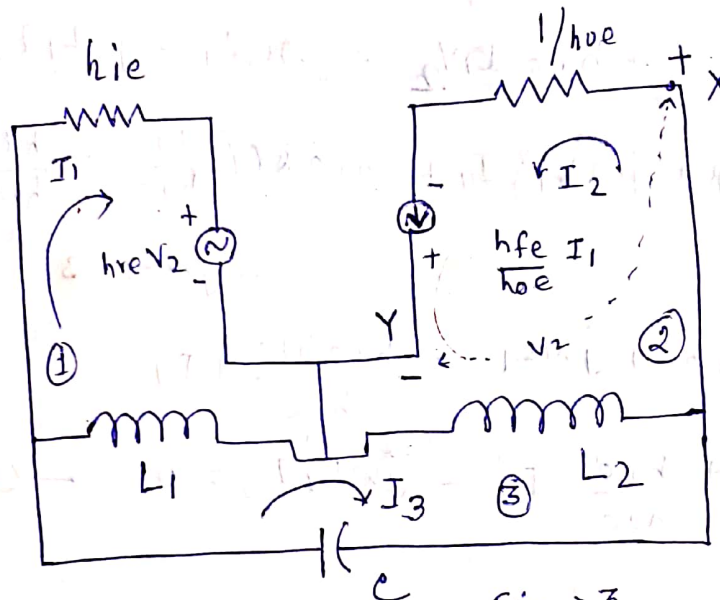 hie
1/hoe
+
X
I1
I2
-
+
hre V2
-
+
hfe/hoe I1
Y
-
V2
1
2
L1
L2
I3
3
C